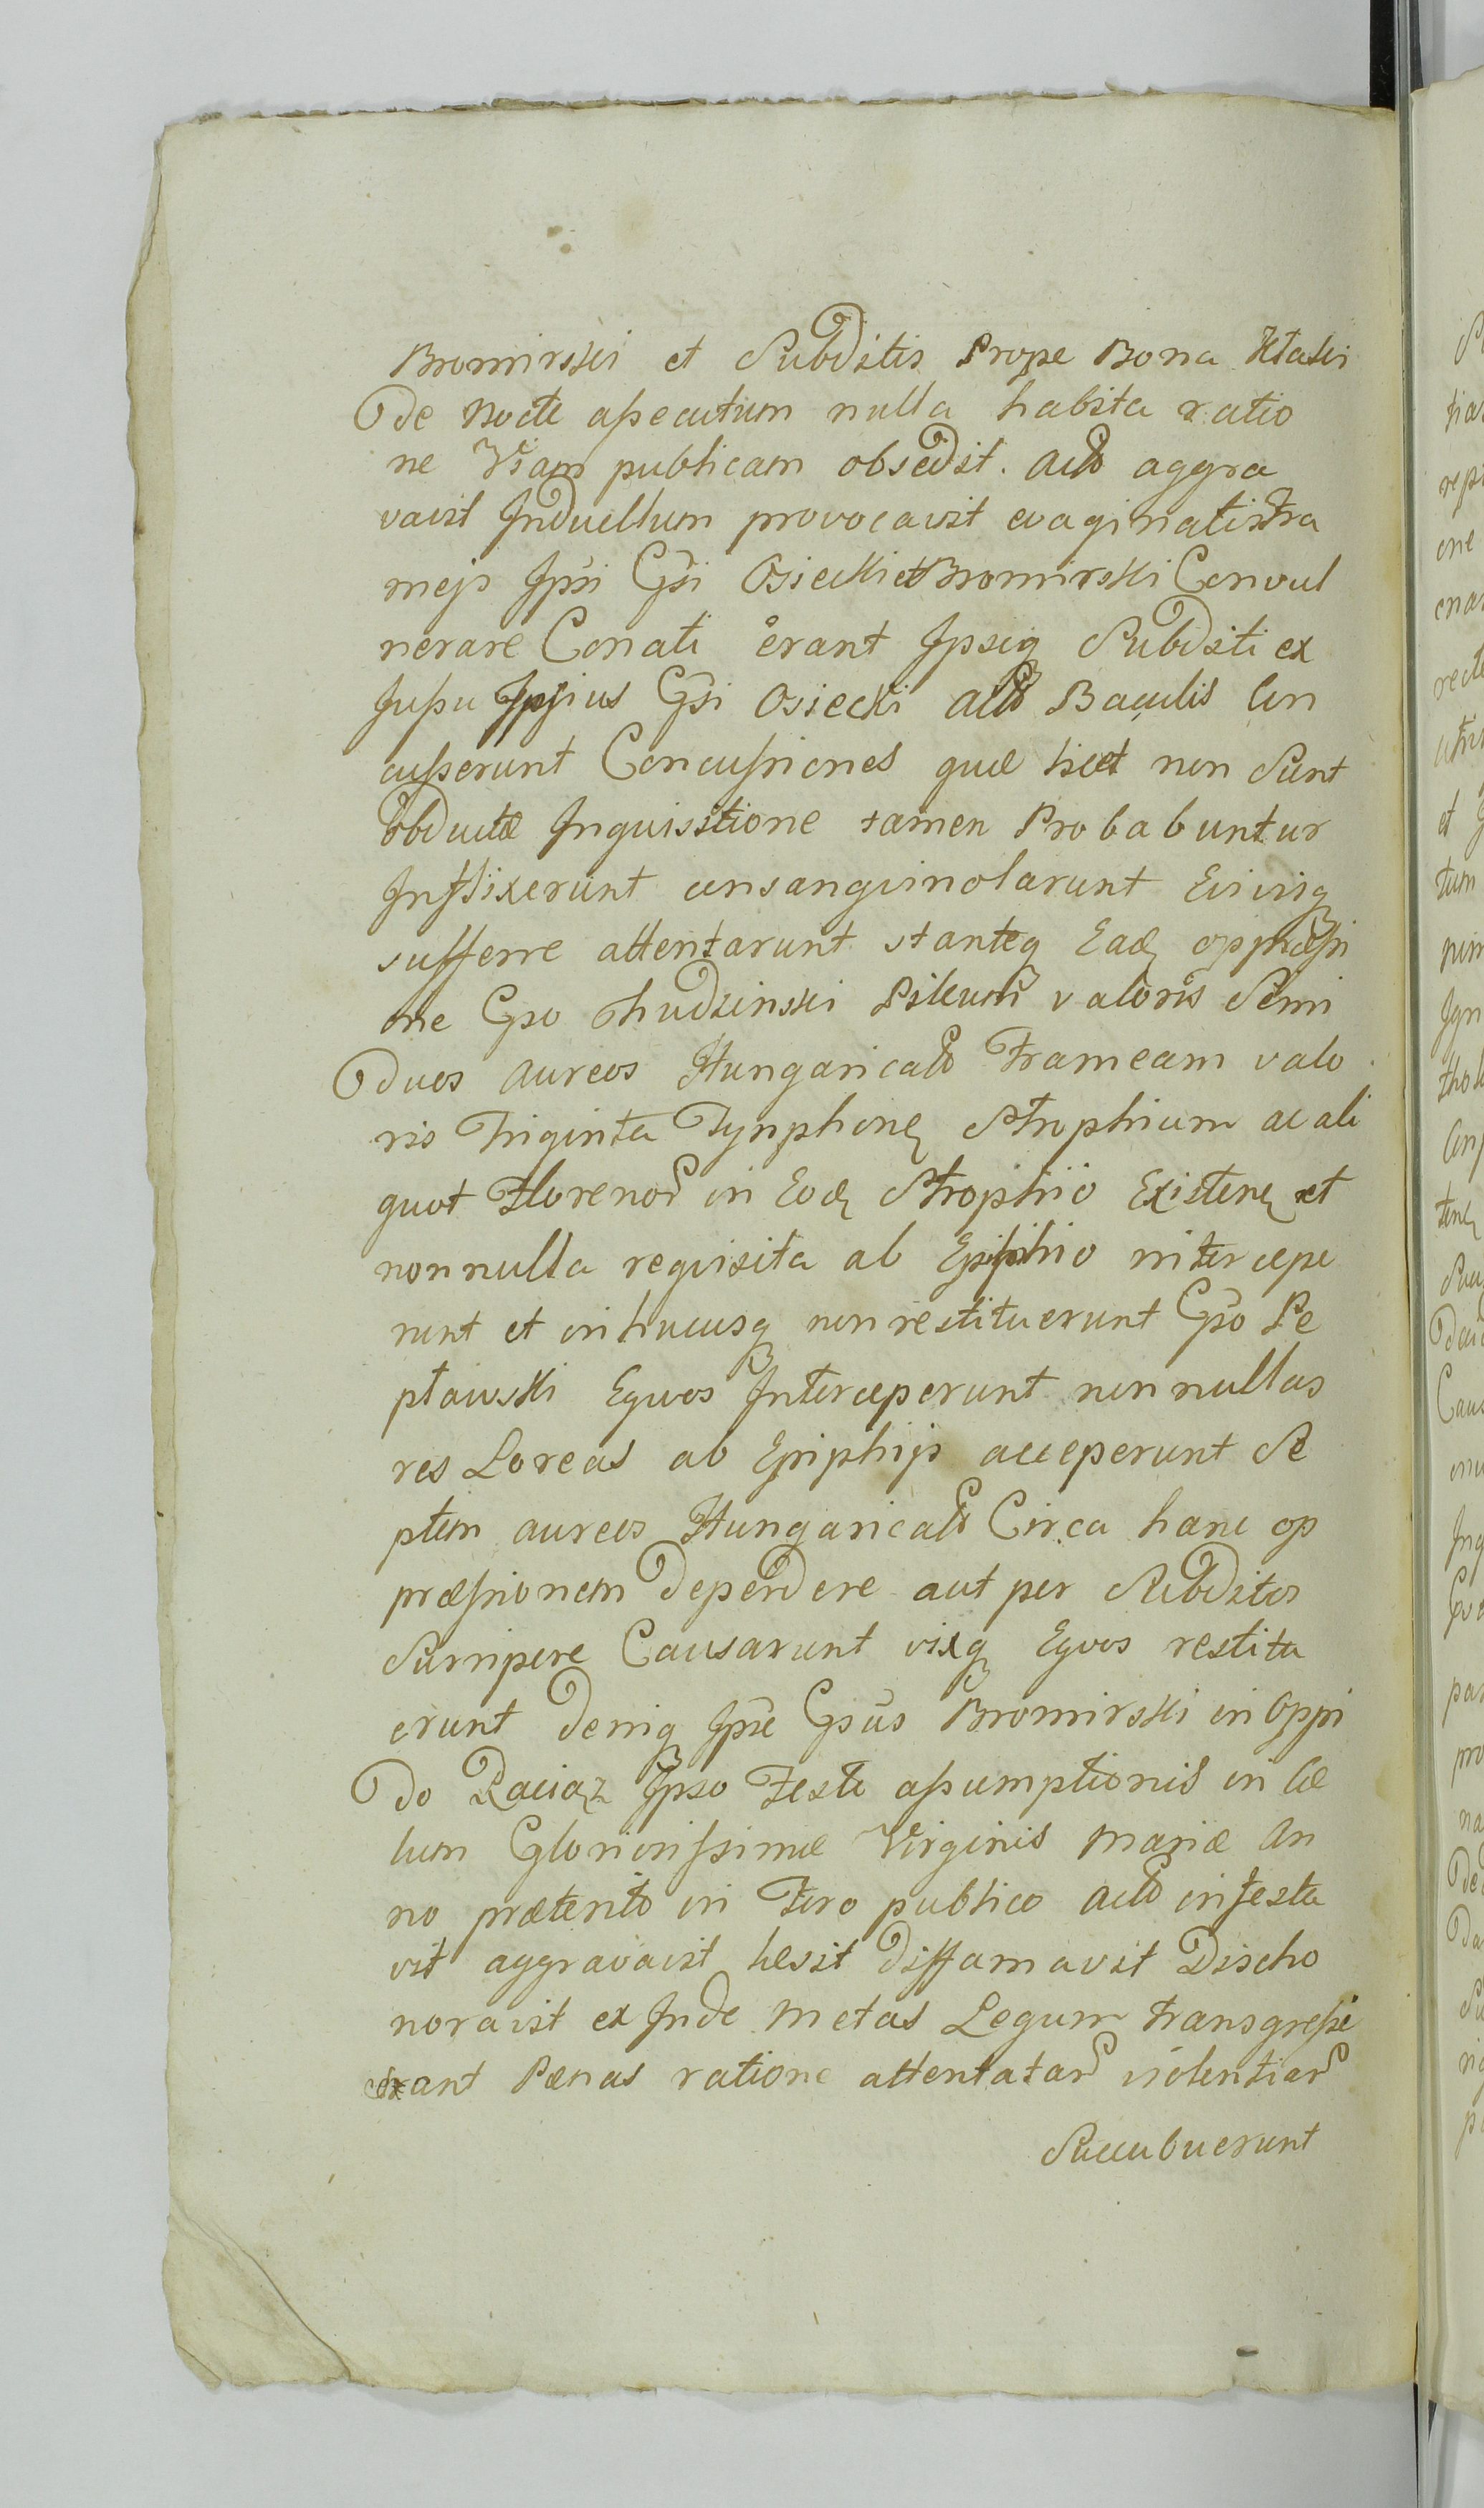 Bromirski et Subditis Prope Bona Ktaki
de nocte assecutum nulla habita ratio
ne Viam publicam obsedit. actõ aggra
vavit Induellum provocavit evaginatis fra
meis Ipsi Gsi Osiecki et Bromirski Convul
nerare Conati erant Ipsiq Subditi ex
Jussu Ipsius Gsi Osiecki actõ Baculis Con
cusserunt Concussiones quæ licet non Sunt
obductæ Inquisitione tamen Probabuntur
Inflixerunt consanguinolarunt Eiviq
sufferre attentarunt stanteq Eadꝫ oppræssi
one Gso Chudzinski Pileum valoris Semi
duos aureos Hungarical Frameam valo
ris Triginta Tynphonꝫ Strophium ac ali
quot Florenor in Eodꝫ Strophio Existenꝫ et
nonnulla requisita ab Ephiphio intercepe
runt et inhucusq non restituerunt Gso Pe
ptawski Equos Interceperunt nonnullas
res Loreas ab Epiphijs acceperunt Se
ptem aureos Hungarical Circa hanc op
præssionem deperdere aut per Subditos
Surripere Causarunt vixq Equos restitu
erunt deniq Ipse Gsus Bromirski in Oppi
do Raciąz Ipso Festo assumptionis in Cæ
lum Gloriosissimæ Virginis Mariæ An
no præterito in Foro publico actõ infesta
vit aggravavit læsit diffamavit Discho
noravit ex Inde metas Legum transgressi
erant Pænas ratione attentatar violentiar
Succubuerunt